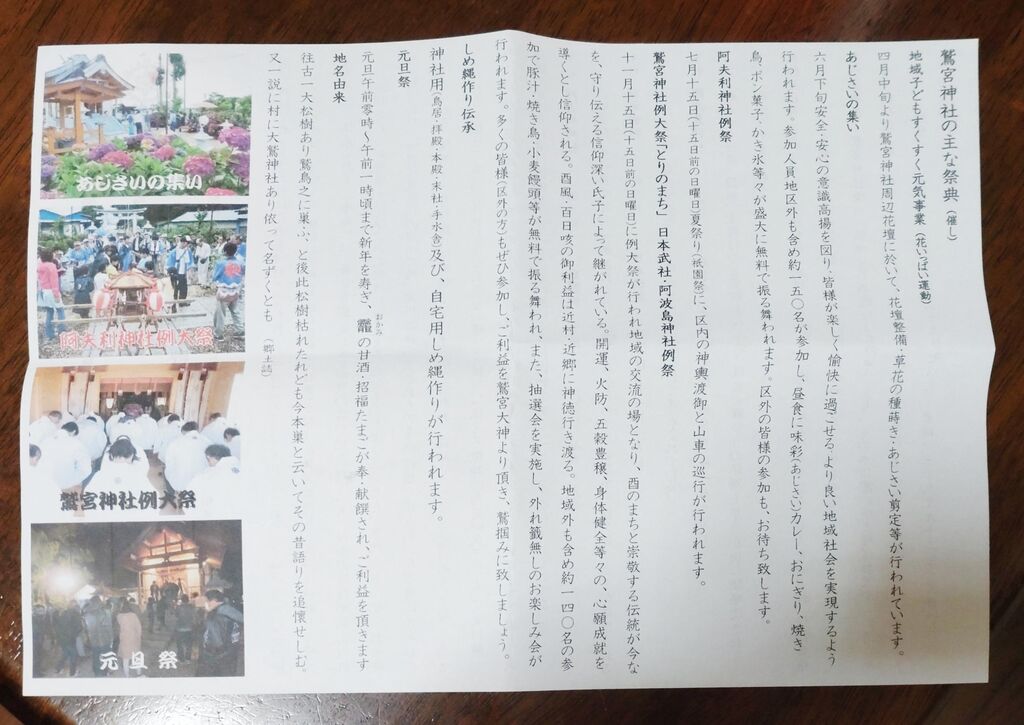 鷲宮神社の主な祭典(催し)
地域子どもすくすく元気事業(花いっぱい運動)
四月中旬より鷲宮神社周辺花壇に於いて、花壇整備・草花の種蒔き・あじさい剪定等が行われています。
あじさいの集い
六月下旬安全・安心の意識高揚を図り、皆様が楽しく愉快に過ごせる、より良い地域社会を実現するよう
行われます。参加人員地区外も含め約一五〇名が参加し、昼食に味彩(あじさい)カレー、おにぎり、焼き
鳥、ポン菓子・かき氷等々が盛大に無料で振る舞われます。区外の皆様の参加も、お待ち致します。
阿夫利神社例祭
七月十五日(十五日前の日曜日)夏祭り(祇園祭)に、区内の神輿渡御と山車の巡行が行われます。
鷲宮神社例大祭「とりのまち」 日本武社・阿波島神社例祭
十一月十五日(十五日前の日曜日)に例大祭が行われ地域の交流の場となり、酉のまちと崇敬する伝統が今な
を、守り伝える信仰深い氏子によって継がれている。開運、火防、五穀豊穣、身体健全等々の、心願成就を
導くとし信仰される。酉風・百日咳の御利益は近村・近郷に神徳行き渡る。地域外も含め約一四〇名の参
加で豚汁・焼き鳥・小麦饅頭等が無料で振る舞われ、また、抽選会を実施し、外れ籤無しのお楽しみ会が
行われます。多くの皆様(区外の方)もぜひ参加し、ご利益を鷲宮大神より頂き、鷲掴みに致しましょう。
しめ縄作り伝承
神社用(鳥居・拝殿・本殿・末社・手水舎)及び、自宅用しめ縄作りが行われます。
元旦祭
元旦午前零時〜午前一時頃まで新年を寿ぎ、龗(おかみ)の甘酒・招福たまごが奉・献饌され、ご利益を頂きます
地名由来
往古一大松樹あり鷲鳥之に巣ふ、と後此松樹枯れたれども今本巣と云いてその昔語りを追懐せしむ。
又一説に村に大鷲神社あり依って名ずくとも (郷土誌)
あじさいの集い
阿夫利神社例大祭
鷲宮神社例大祭
元旦祭